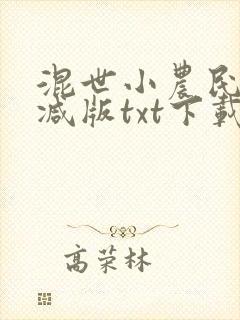 混世小农民
减版txt下载
高荣林